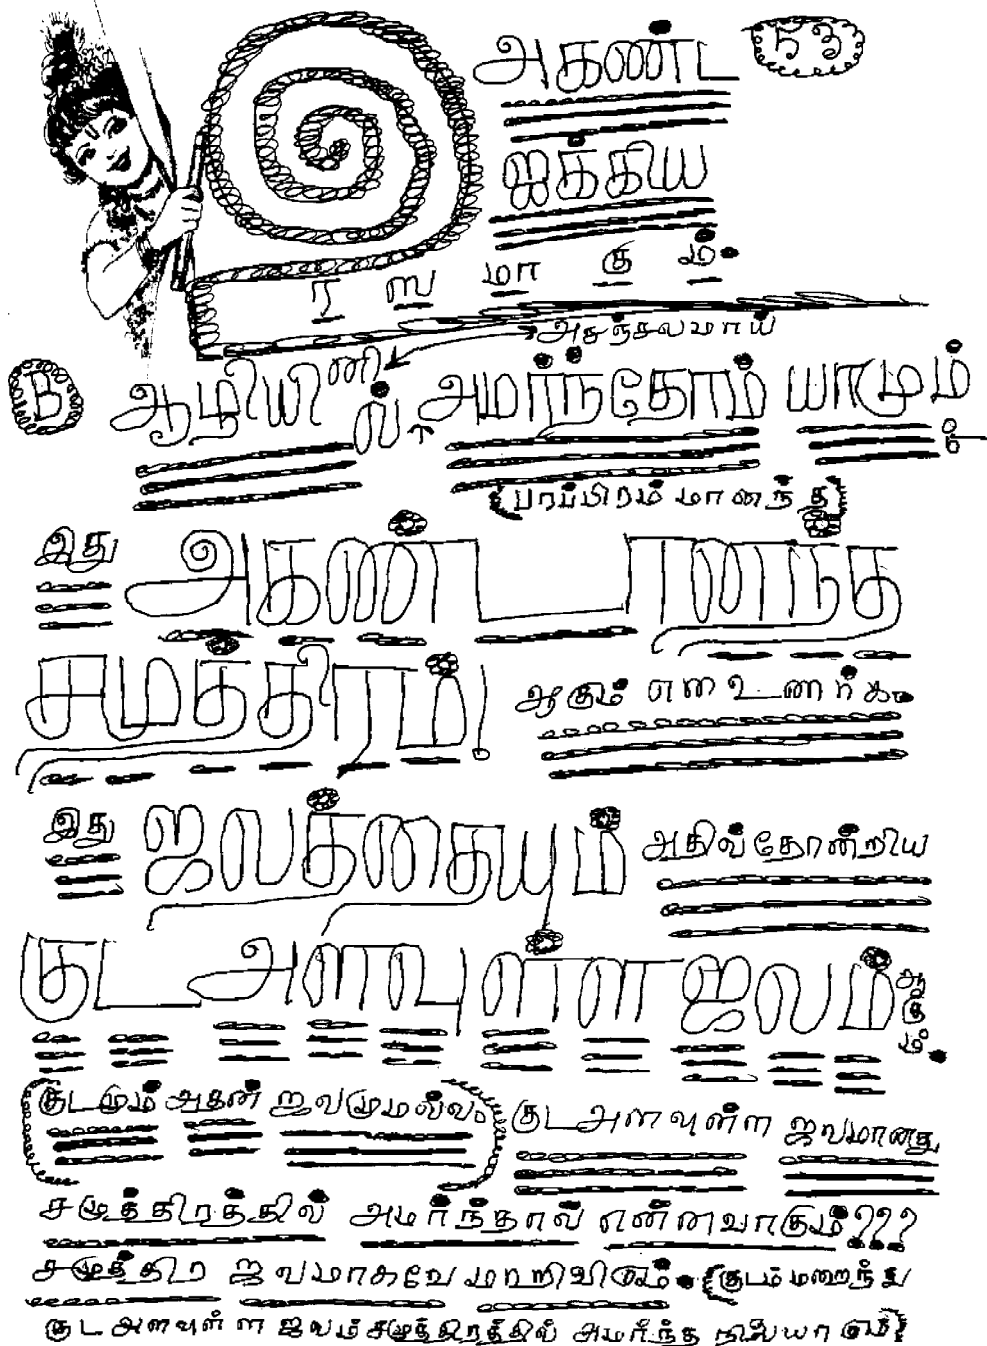 அகண்ட 53
ஐக்கிய
ர ஸ மா கு ம்.
அசஞ்சலமாய்
B ஆழியினில் அமர்ந்தோம் யாமும்
(பரப்பிரம்மானந்த)
இது அகண்டானந்த
சமுத்திரம்! ஆகும் என உணர்க.
இது ஜலத்தையும் அதில்தோன்றிய
குட அளவுள்ள ஜலம் ஆகும்.
(குடமும் அதன் ஜலமுமல்ல) குட அளவுள்ள ஜலமானது
சமுத்திரத்தில் அமர்ந்தால் என்னவாகும்???
சமுத்திர ஜலமாகவே மாறிவிடும். (குடம் மறைந்து
குட அளவுள்ள ஜலம் சமுத்திரத்தில் அமர்ந்த நிலையாகும்)